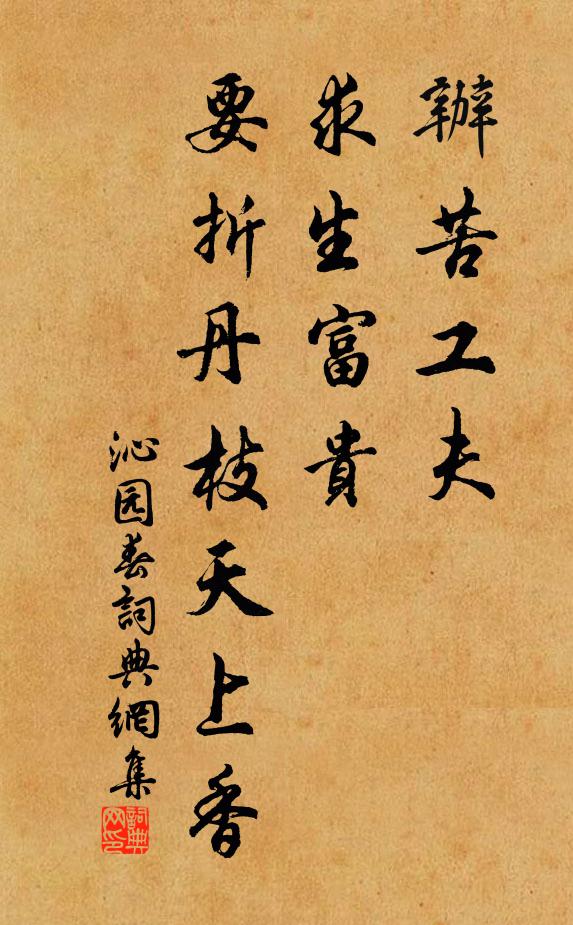 辦苦工夫
求生富貴
要折丹枝天上香
沁园春詞典網集
詞典网印